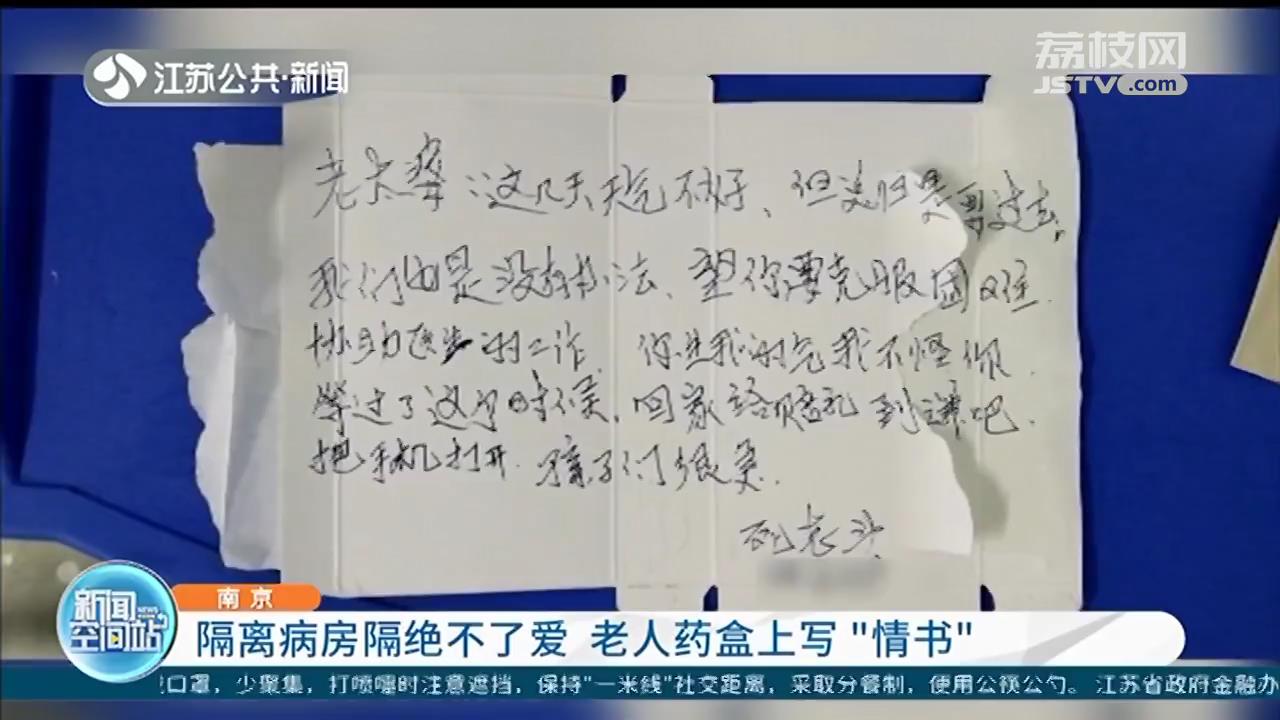 江苏公共·新闻
荔枝网
JSTV.com
老太婆：这几天天气不好、但总归是要过去，
我们也是没有办法、望你要克服困难．
协助医生的工作．你生我的气我不怪你．
等过了这个时候，回家给赔礼到歉吧．
把手机打开．孩子们很急．
死老头
新闻
NEWS
空间站
南京
隔离病房隔绝不了爱 老人药盒上写"情书"
口罩，少聚集，打喷嚏时注意遮挡，保持"一米线"社交距离，采取分餐制，使用公筷公勺。 江苏省政府金融办